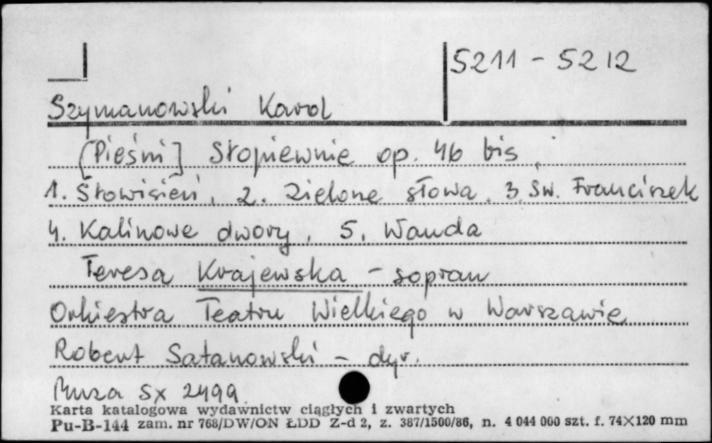 5211 - 5212
Szymanowski Karol
[Pieśni] Słopiewnie op. 46 bis,
1. Słowisień, 2. Zielone słowa, 3. Św. Franciszek
4. Kalinowe dwory, 5. Wanda
Teresa Krajewska - sopran
Orkiestra Teatru Wielkiego w Warszawie
Robert Satanowski - dyr.
Muza SX 2499
Karta katalogowa wydawnictw ciągłych i zwartych
Pu-B-144 zam. nr 768/DW/ON ŁDD Z-d 2, z. 387/1500/86, n. 4 044 000 szt. f. 74×120 mm